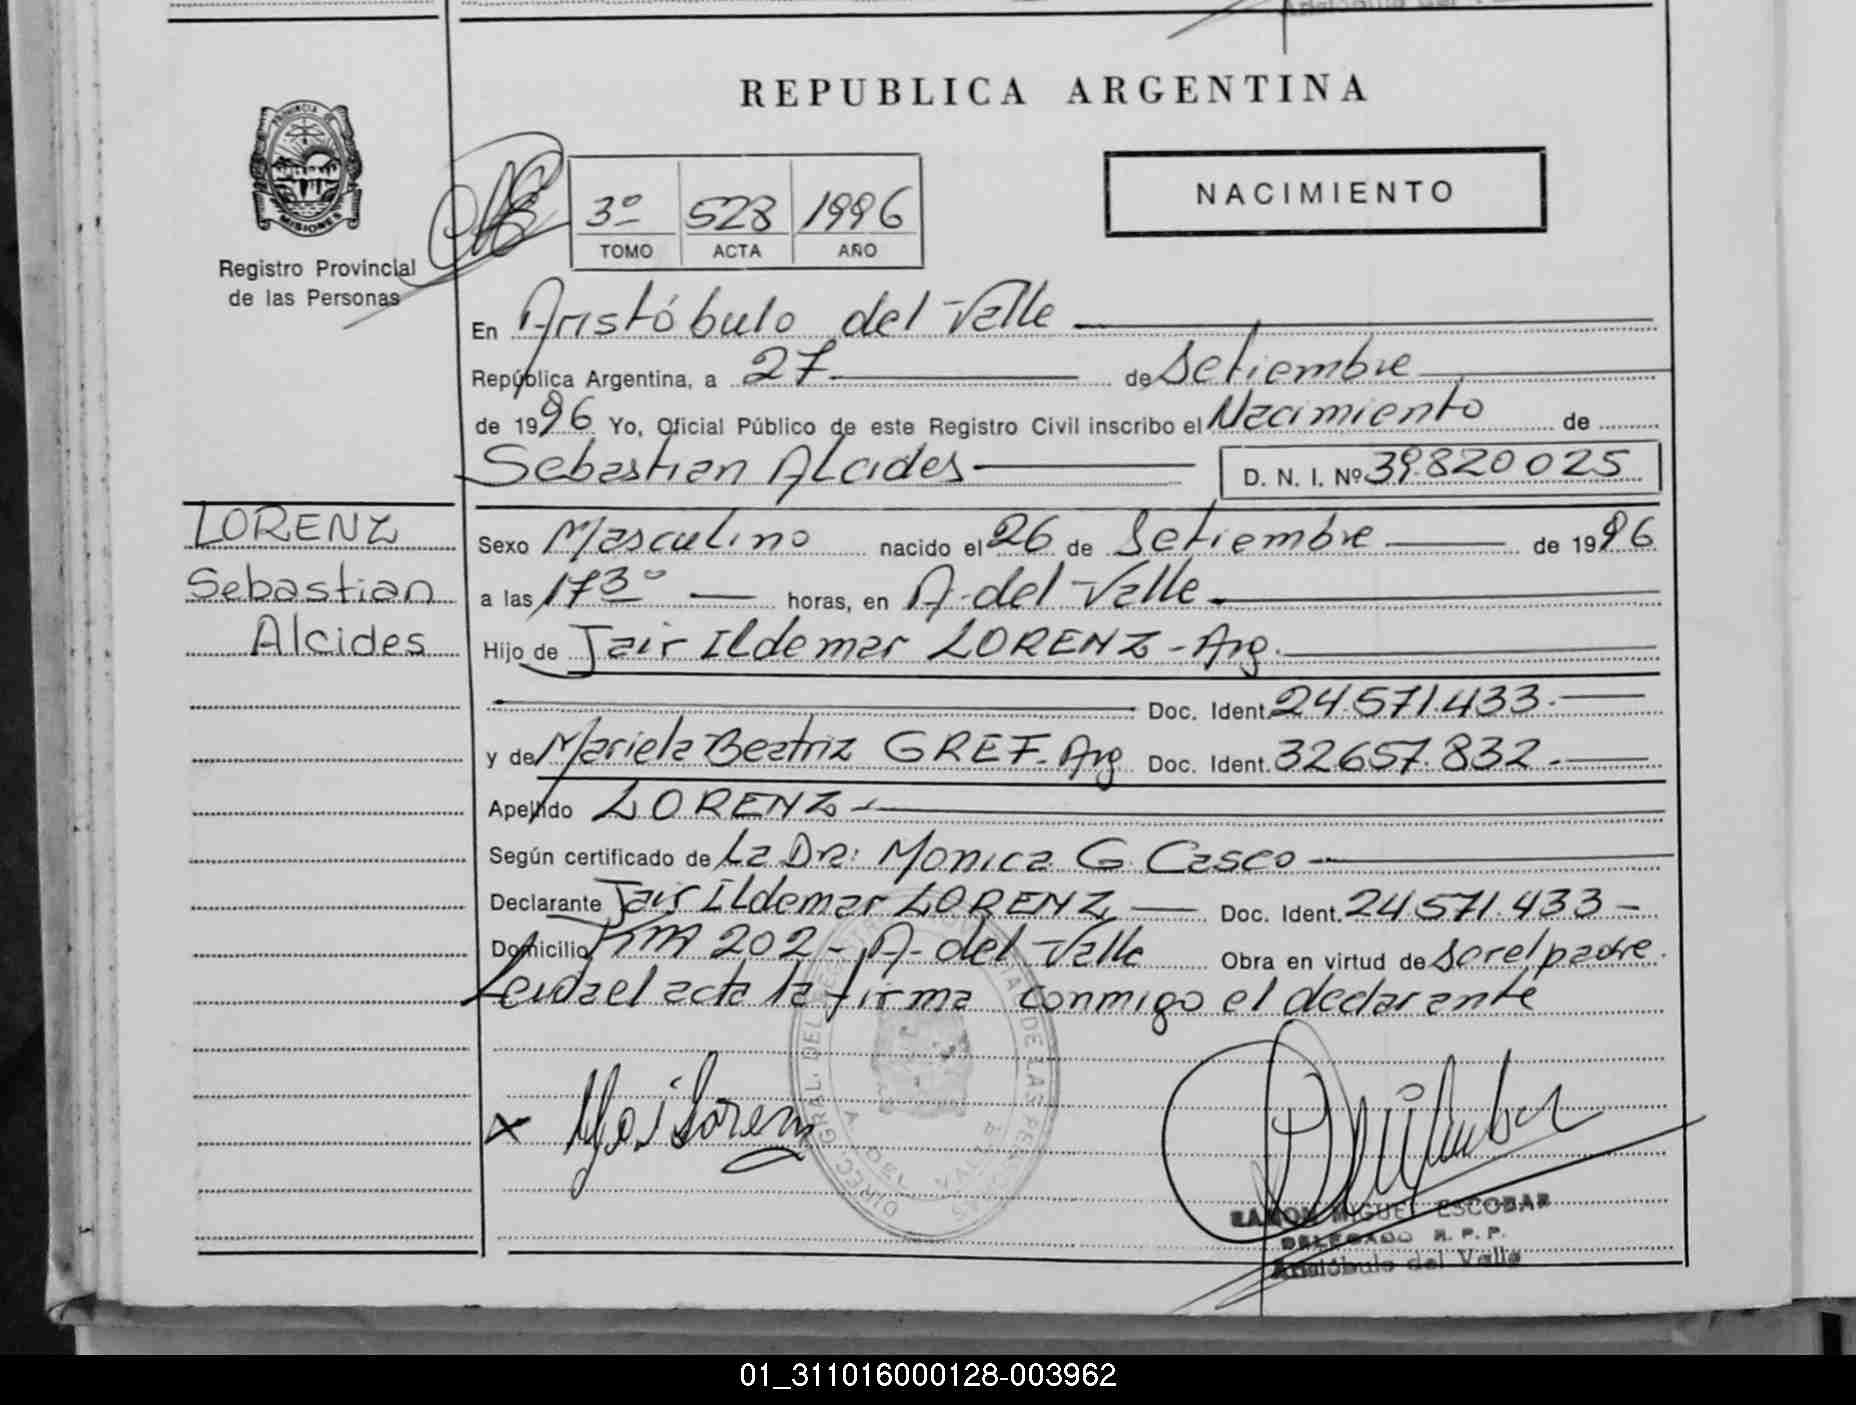 REPUBLICA ARGENTINA
PROVINCIA DE
MISIONES
Registro Provincial
de las Personas
3º 528 1996
TOMO ACTA AÑO
NACIMIENTO
En Aristóbulo del Valle
República Argentina, a 27 de Setiembre
de 1996 Yo, Oficial Público de este Registro Civil inscribo el Nacimiento de
Sebastian Alcides D. N. I. Nº 39.820025
LORENZ
Sebastian
Alcides
Sexo Masculino nacido el 26 de Setiembre de 1996
a las 17 3º horas, en A. del Valle.
Hijo de Jair Ildemar LORENZ - Arg.
Doc. Ident. 24.571.433.
y de Mariela Beatriz GREF. Arg Doc. Ident. 32657.832.
Apellido LORENZ
Según certificado de La Dra: Monica G. Casco
Declarante Jair Ildemar LORENZ Doc. Ident. 24571.433
Domicilio KM 202 - A. del Valle Obra en virtud de ser el padre.
Leida el acta la firma conmigo el declarante
RAMON MIGUEL ESCOBAR
DELEGADO R. P. P.
Aristóbulo del Valle
01_311016000128-003962